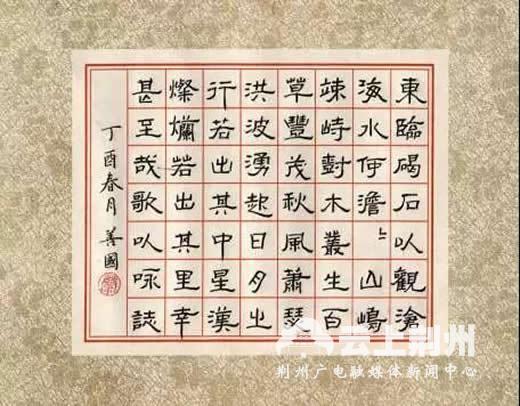 東臨碣石以觀滄
海水何澹〻山嶋
竦峙尌木叢生百
草豐茂秋風蕭瑟
洪波湧起日月之
行若出其中星漢
燦爛若出其里幸
甚至哉歌以咏誌
丁酉春月 善國
云上荆州
荆州广电融媒体新闻中心